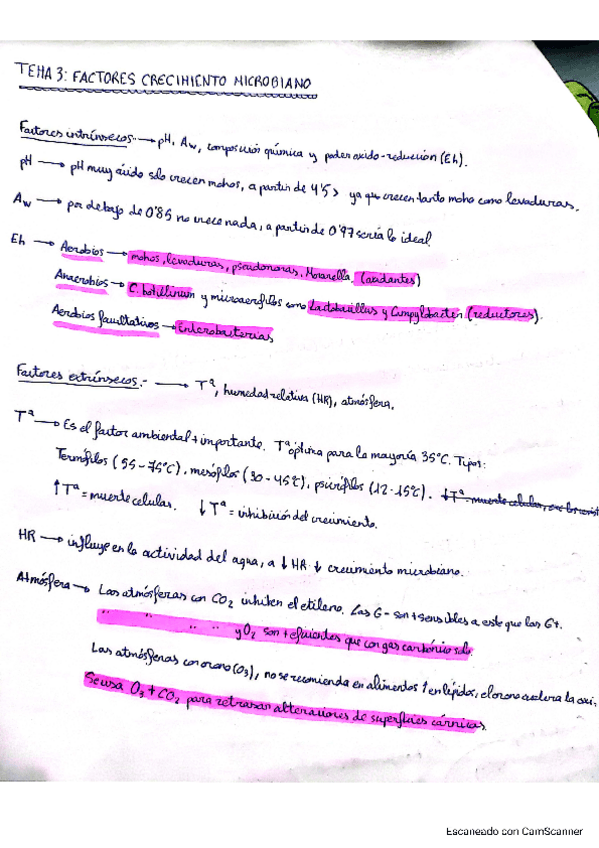 TEMA 3: FACTORES CRECIMIENTO MICROBIANO
Factores intrínsecos.- → pH, Aw, composición química y poder oxido-reducción (Eh).
pH → pH muy ácido solo crecen mohos, a partir de 4'5 > ya que crecen tanto moho como levaduras.
Aw → por debajo de 0'85 no crece nada, a partir de 0'97 sería lo ideal
Eh → Aerobios → mohos, levaduras, pseudomonas, Moraxella (oxidantes)
Anaerobios → C. botillinum y microaerófilos como Lactobacillus y Campylobacter (reductores).
Aerobios facultativos → Enterobacterias
Factores extrínsecos.- → Tª, humedad relativa (HR), atmósfera.
Tª → Es el factor ambiental + importante. Tª óptima para la mayoría 35ºC. Tipos:
Termófilos (55-75ºC), mesófilos (30-45ºC), psicrófilos (12-15ºC). ↓Tª = muerte celular,
↑Tª = muerte celular. ↓Tª = inhibición del crecimiento.
HR → influye en la actividad del agua, a ↓ HR ↓ crecimiento microbiano.
Atmósfera → Las atmósferas con CO2 inhiben el etileno. Las G- son + sensibles a este que las G+.
" " " " y O2 son + eficientes que con gas carbónico solo.
Las atmósferas con ozono (O3), no se recomienda en alimentos ↑ en lípidos, el ozono acelera la oxi.
Se usa O3 + CO2 para retrasar alteraciones de superficies cárnicas.
Escaneado con CamScanner